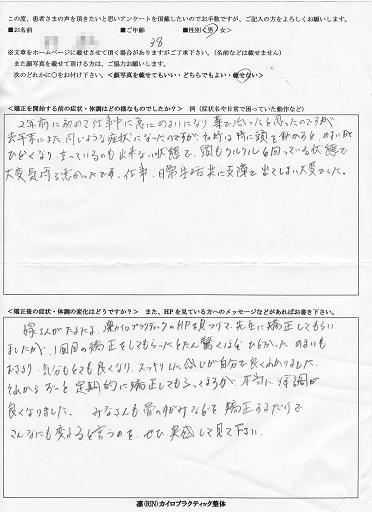 この度、患者さまの声を頂きたいと思いアンケートを頂戴したいのでお手数ですが、ご記入の方をよろしくお願いします。
■お名前 ■ご年齢 38 ■性別<男・女>
※文章をホームページに載せさせて頂く場合がありますがご了承下さい。(名前などは載せません)
また顔写真を載せて頂ける方は、ご協力お願いします。
次のどれかに○をお付け下さい。<顔写真を載せてもいい・どちらでもよい・載せない>
<矯正を開始する前の症状・体調はどの様なものでしたか？ 例（症状名や日常で困っていた動作など）
2年前に初めて仕事中に急にめまいになり薬で治ったと思ったのですが
去年末にまた同じような症状になったのですが、 時に頭を動かすと、めまいが
ひどくなり立っているのも出来ない状態で、頭もクルクルと回っている状態で
大変気持ち悪かったです。仕事、日常生活共に支障で出てしまい大変でした。
<矯正後の症状・体調の変化はどうですか？ また、HPを見ている方へのメッセージなどがあればお書き下さい。
嫁さんがたまたま、凛カイロプラクティックのHPを見つけて、先生に矯正してもらい
ましたが、1回目の矯正をしてもらったとたん驚くほどひどかっためまいも
おさまり、気分もとても良くなり、スッキリした感じが自分で良くわかりました。
それからずっと定期的に矯正してもらってますが、本当に体調が
良くなりました。 みなさんも骨のゆがみなどを矯正するだけで
こんなにも変わると言うのを、ぜひ実感して見て下さい。
凛(RIN)カイロプラクティック整体